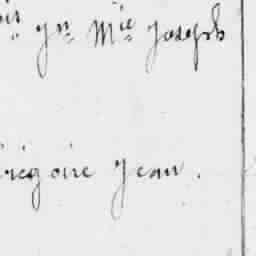 yn Mie Joseph
irégoire Jean.